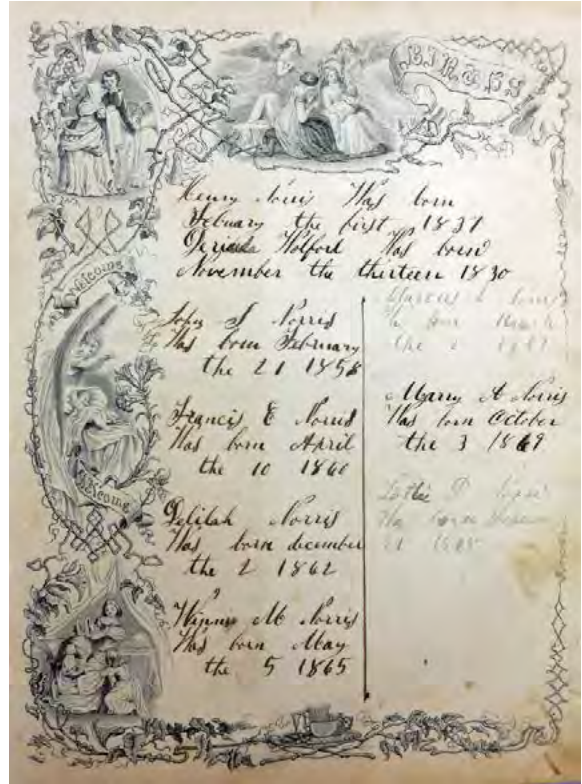 BIRTHS
Henry Norris Was born
Febuary the first 1831
Holford Was born
November the thirteen 1830
Welcome
John S Norris
Was born February
the 21 1858
Francis E Norris
Was born April
the 10 1860
Welcome
Delilah Norris
Was born december
the 2 1862
M Norris
Was born May
the 5 1865
Marcus L Norris
born March
the
Marry A Norris
Was born October
the 3 1869
Lottie
Was born